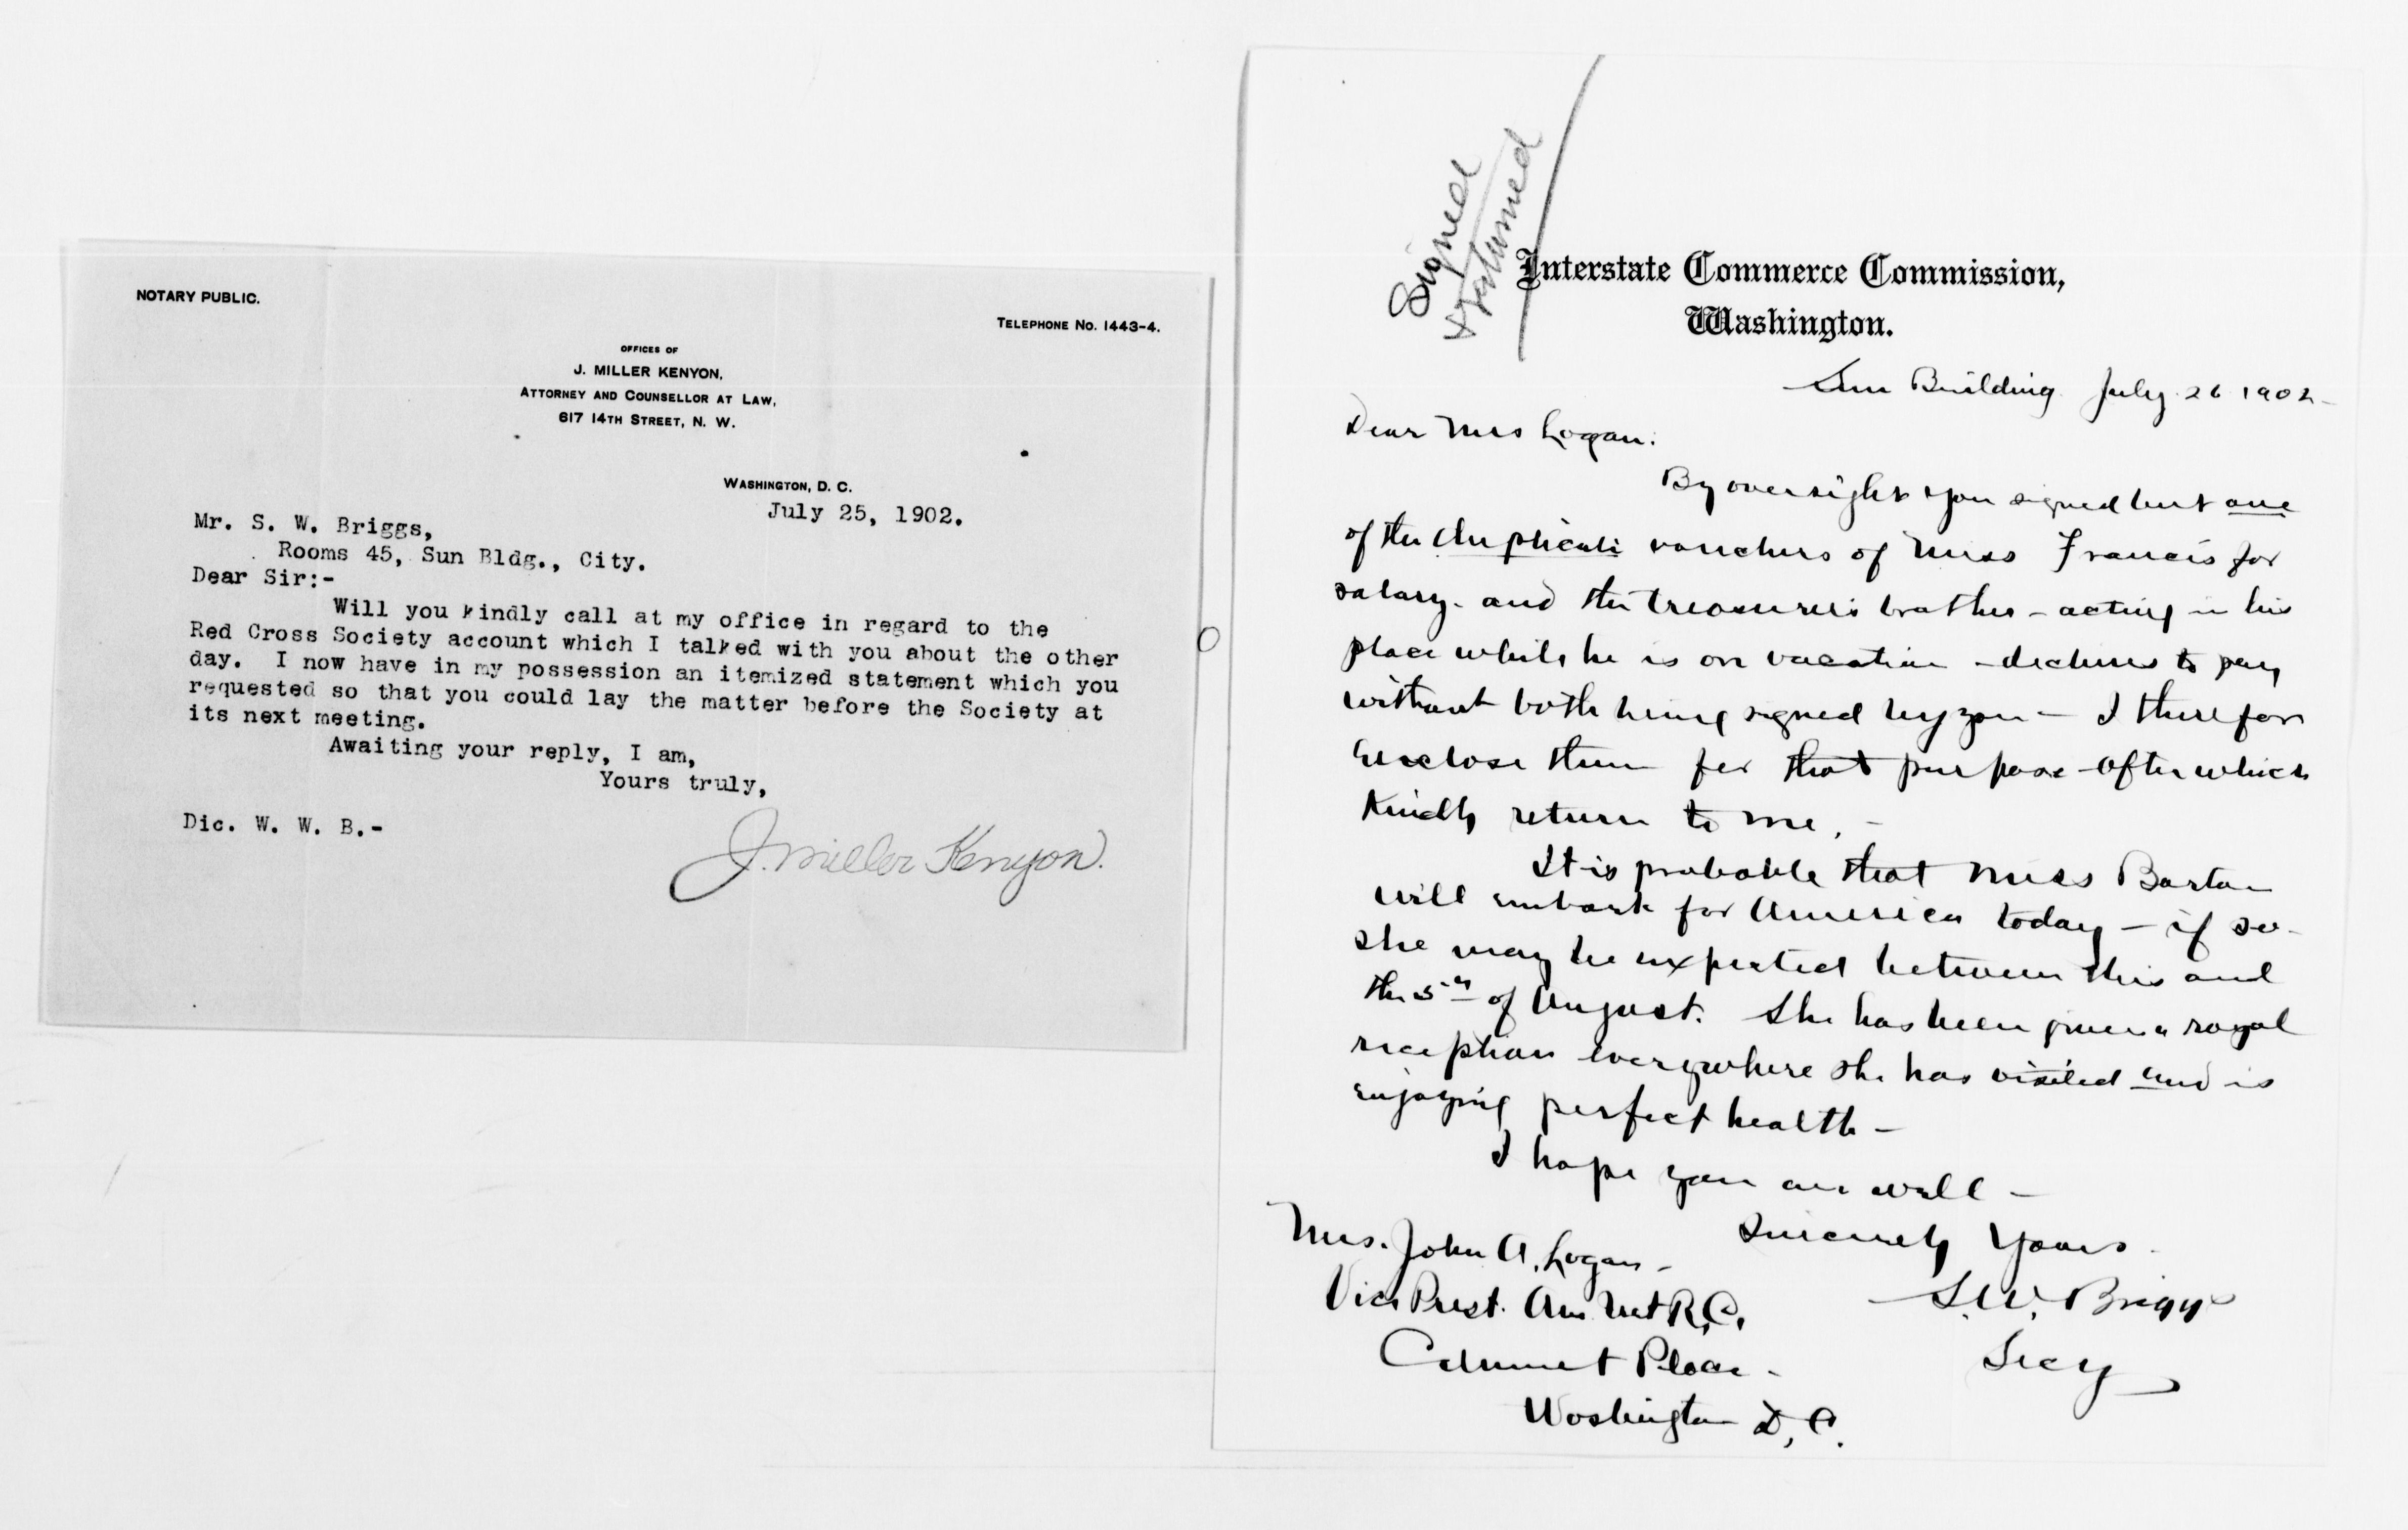 NOTARY PUBLIC.
TELEPHONE NO. 1443-4.
OFFICES OF
J. MILLER KENYON,
ATTORNEY AND COUNSELLOR AT LAW,
617 14TH STREET, N. W.
WASHINGTON, D. C.
July 25, 1902.
Mr. S. W. Briggs,
Rooms 45, Sun Bldg., City.
Dear Sir:-
Will you kindly call at my office in regard to the
Red Cross Society account which I talked with you about the other
day. I now have in my possession an itemized statement which you
requested so that you could lay the matter before the Society at
its next meeting.
Awaiting your reply, I am,
Yours truly,
Dic. W. W. B.-
J. Miller Kenyon.
Signed
& returned
Interstate Commerce Commission,
Washington.
Sun Building July 26 1902-
Dear Mrs Logan:
By oversight you signed but one
of the duplicate vouchers of Miss Francis for
salary- and the treasurer's brother - acting in his
place while he is on vacation - declines to pay
without both being signed by you - I therefore
enclose them for that purpose - After which
kindly return to me. -
It is probable that Miss Barton
will embark for America today - if so -
she may be expected between this and
the 5th of August. She has been given a royal
reception everywhere she has visited and is
enjoying perfect health -
I hope you are well -
Sincerely Yours.
Mrs. John A. Logan -
Vice Prest. Am Nat R.C.
S. W. Briggs
Calumet Place -
Secy
Washington D. C.